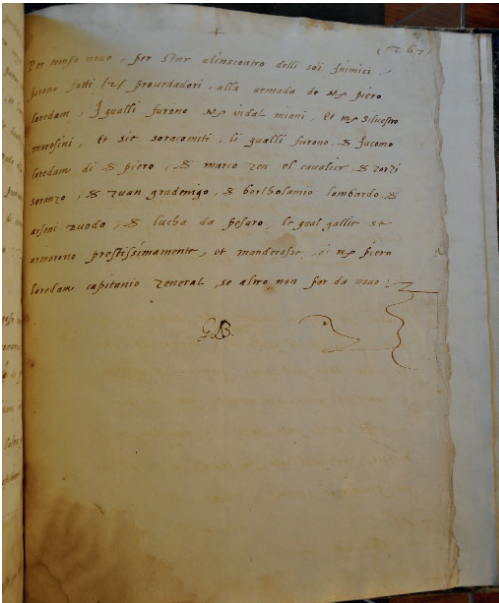 (267)
Per tempo novo, per star alinscontro delli soi Inimici,
furono fatti (2) provedadori, alla armada de ms piero
loredam, I qualli furono ms vidal miani, et ms silvestro
morosini, Et sie soracomiti, li qualli furono. S Jacomo
loredam di S piero, S marco zen el cavalier, S zorzi
soranzo, S zuan gradenigo, S bortholamio lombardo, S
arseni duodo, S lucha da pesaro, le qual gallie se
armorono prestissimamente, et mandorosse, a ms piero
loredam capitanio zeneral, se altro non por da novo: